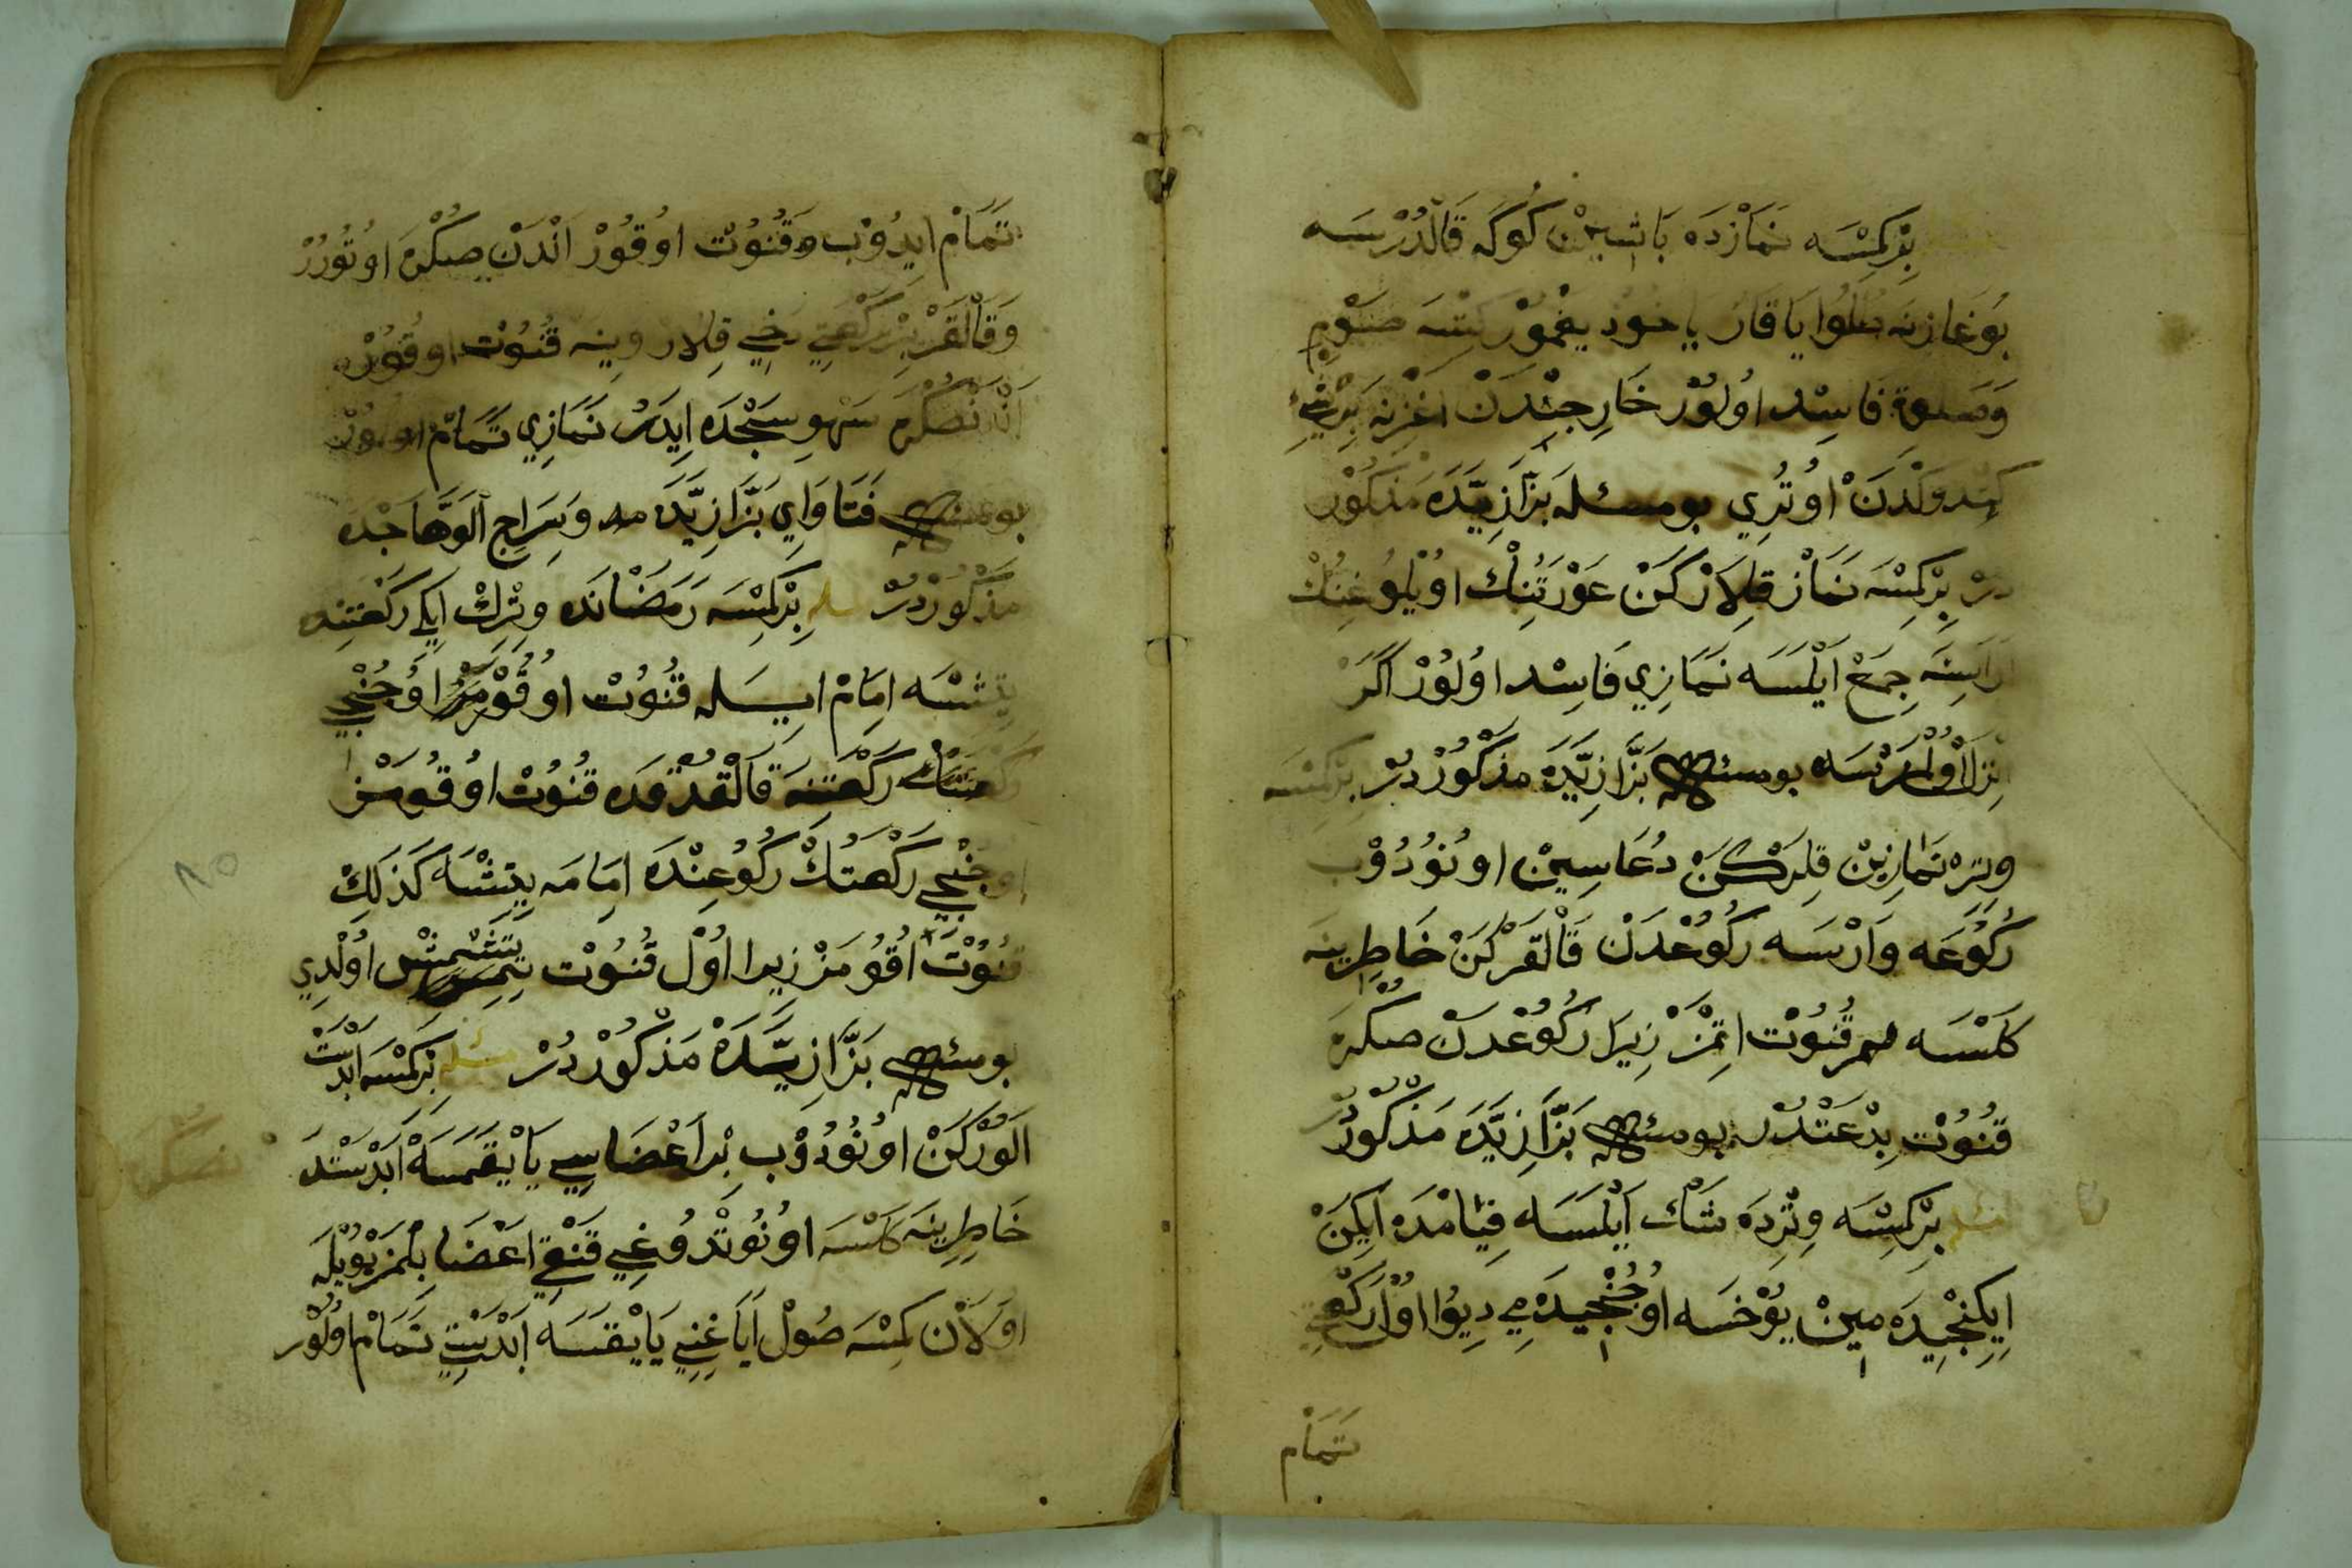 بِرْكِمْسَه نَمَازْدَه بَاشِينْ كُوكَه قَالْدُرْسَه
بُوغَازِنَه طُلُوا يَا قَارْ يَا خُودْ يَغْمُوْرْ كِتْسَه صَوْمِ
وَصَلَوة فَاسِدْ اُولُوْرْ خَارِجِنْدَنْ اغْزِنَه بِرْنَيِ
كِتْدوكْدَنْ اوُتُرِي بو مسئله بَزَّازِيَّدَه مَذْكُوْر
دُرْ بِرْكِمْسَه نَمَازْ قِلاَرْكَنْ عَوْرَتُنِكْ اوُيْلُوغِنُكْ
ارَاسِنَه جِمَعْ اَيْلَسَه نَمَازِي فَاسِدْ اوُلُوْرْ اَكَرْ
اِنْزَالْ اوُلْمَزْسَه بو مسئله بَزَّازِيَّدَه مَذْكُوْرْ دُرْ بِرْكِمْسَه
وِتِرْ نَمَازِينْ قِلَرْكَنْ دُعَاسِينْ اوُنُوْدُوْب
رُكُوْعَه وَارْسَه رُكُوْعْدَنْ قَالْقَرْكَنْ خَاطِرِينَه
كَلْسَه قُنُوْت اتِمَزْ زِيرَا رُكُوْعْدَنْ صكْرَه
قُنُوْت بِدْعَتْدُرْ بو مسئله بَزَّازِيَّدَه مَذْكُوْر دُرْ
مسئله بِرْكِمْسَه وِتِرْدَه شَكْ اَيْلَسَه قِيَامْدَه اَيكَنْ
اِيكِنْجِيدَه مِينْ يُوْخْسَه اوُجُنْجِيدَه مِي دِيوُا اوُلْ رَكْعَتِي
تَمَامْ
تَمَامْ ايدُوْب وقُنُوْت اوُقُوْرْ اَنْدَنْ صكْرَه اوُتُوُرُرْ
وَقَالْقَرْ بِرْ رَكْعَتِي دَخِي قِلاَرْ وِينَه قُنُوْت اوُقُوْرْ
اَنْدَنْصكْرَه سَهْوِ سَجْدَه اِيدَرْ نَمَازِي تَمَامْ اوُلُوْرْ
بو مسئله فَتَاوَايِ بَزَّازِيَّدَه وَسِرَاجِ اَلوَهَّاجْدَه
مَذْكُوْرْدُرْ مسئله بِرْكِمْسَه رَمَضَانْدَه وِتْرِكْ ايكِي رَكْعَتِنْه
يِتِشْسَه اِمَامْ ايسَله قُنُوْت اوُقُوْمَزْ اوُجُنْجِي
رَكْعَتُكْ رَكْعَتِنَه قَالْقدُقْدَه قُنُوْتْ اوُقُومَزْ
اوجُنْجِي رَكْعَتُكْ رُكُوُعِنْدَه اِمَامَه يِتِشْسَه كَذَلِكْ
قُنُوْت اُقُومَزْ زيرا اوُلْ قُنُوْت يِتِشْمِشْ اوُلْدِي
بو مسئله بَزَّازِيَّدَه مَذْكُوْر دُرْ مسئله بِرْكِمْسَه اَبْدَسْت
الَوُرْكَنْ اوُنُوْدُوْب بِرْ اَعْضَاسِي يَايْقَمَسَه اَبْدَسْتدَه
خَاطِرِينَه كَلْسَه اوُنُوْتْدُوُغِي قَنْغِي اعْضَا بِلْمَزْ بُوُيْلَه
اوُلاَنْ كِمْسَه صُوْلْ اَيَاغِنِي يَايْقَسَه اَبْدَسْتِي تَمَامْ اوُلُوْر